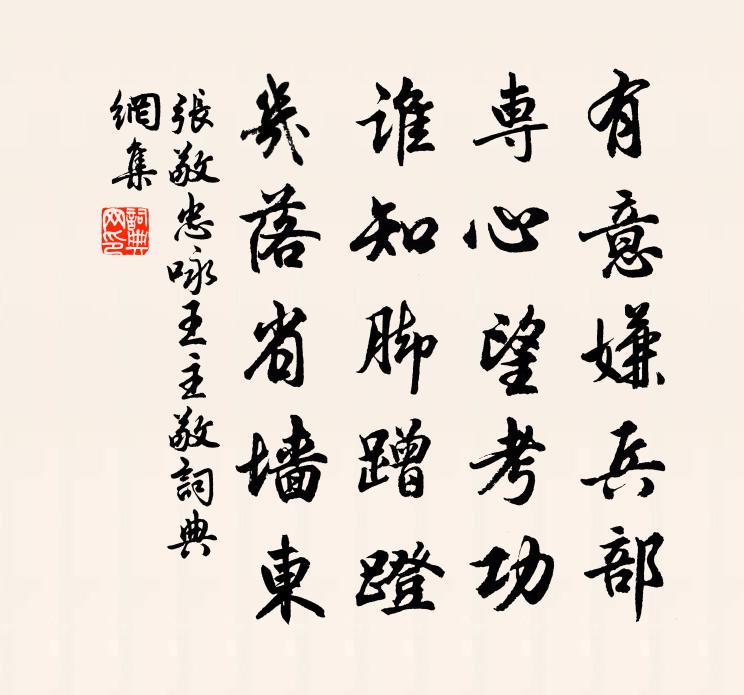 有意嫌兵部
専心望考功
誰知脚蹭蹬
幾落省墻東
張敬忠咏王主敬詞典
網集
詞典
网印